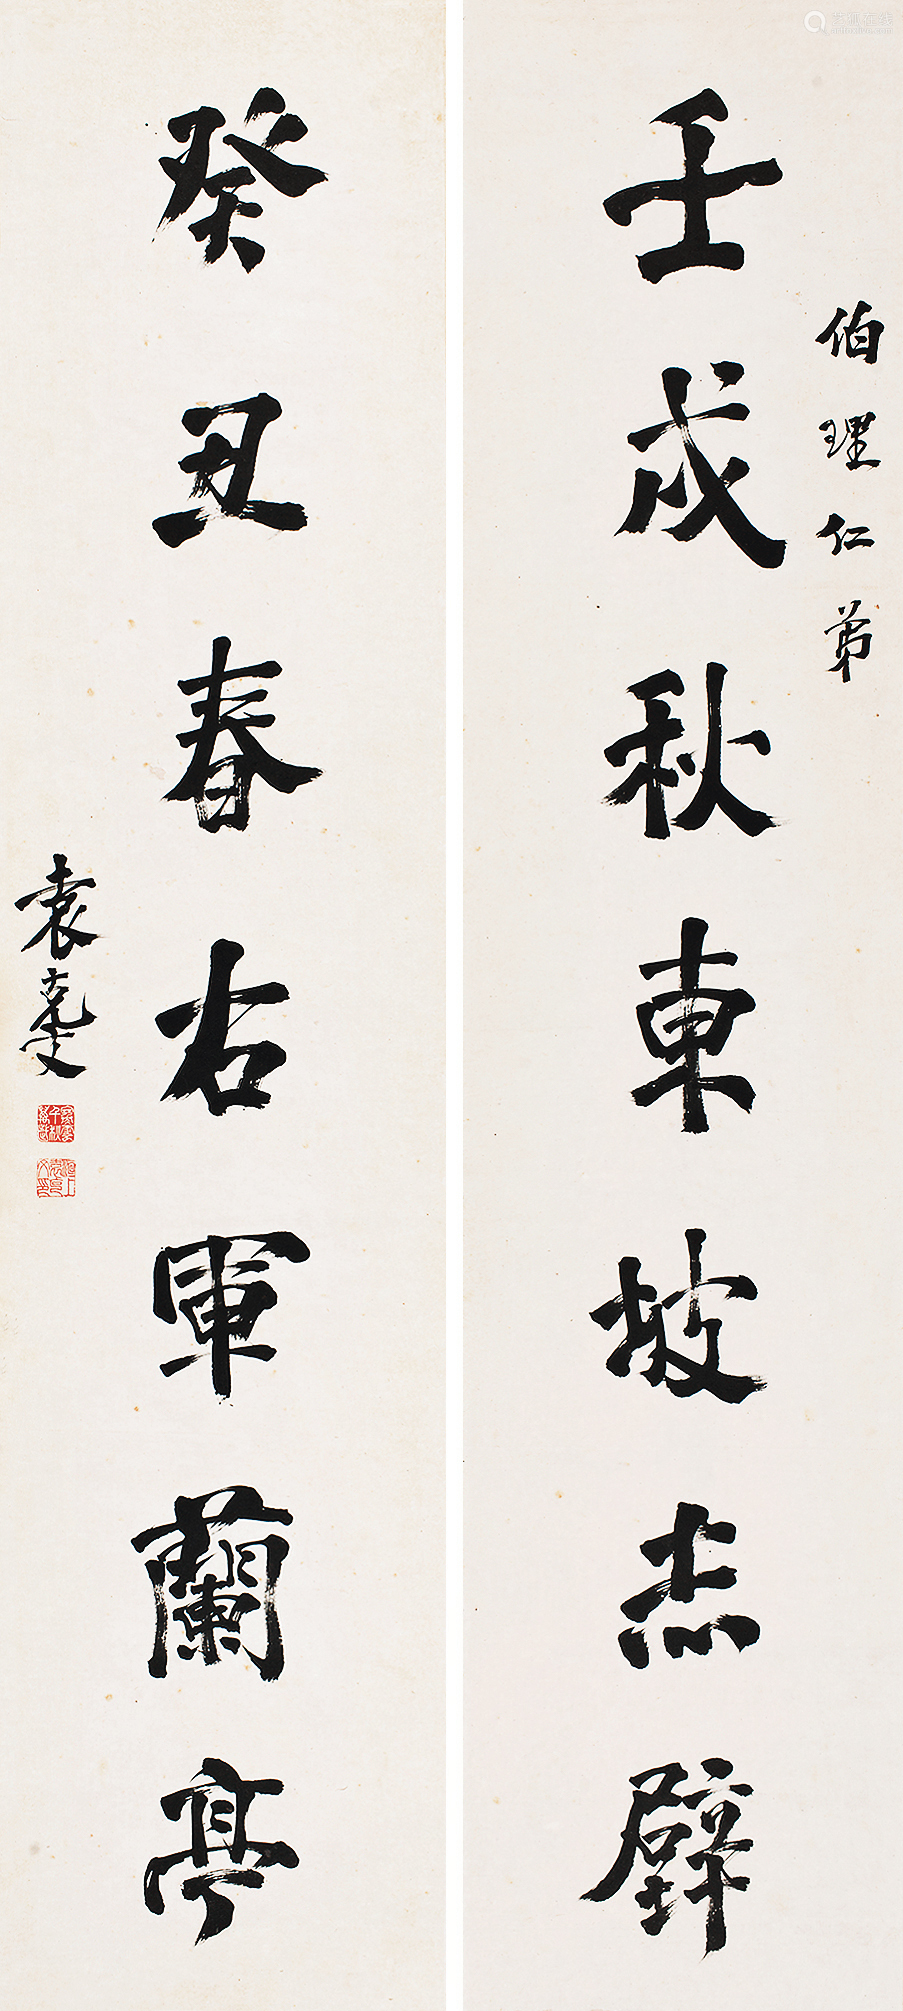 伯理仁弟
壬戌秋東坡赤壁
癸丑春右軍蘭亭
袁克文